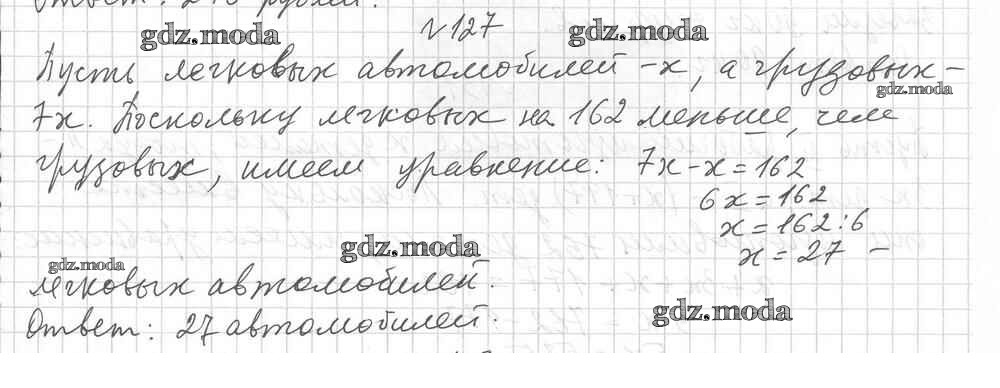 №127
gdz.moda
gdz.moda
Пусть легковых автомобилей -x, а грузовых -
gdz.moda
7x. Поскольку легковых на 162 меньше, чем
грузовых, имеем уравнение: 7x-x=162
6x=162
x=162:6
x=27 -
gdz.moda
gdz.moda
легковых автомобилей.
gdz.moda
Ответ: 27 автомобилей.